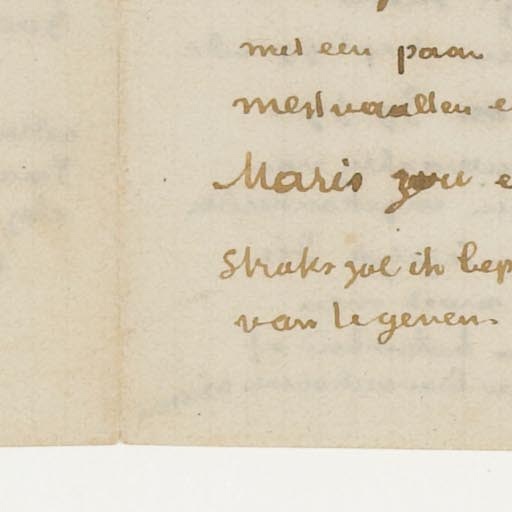 met een paar
mestvaalten e
Maris zou e
Straks zal ik bep
van te geven.